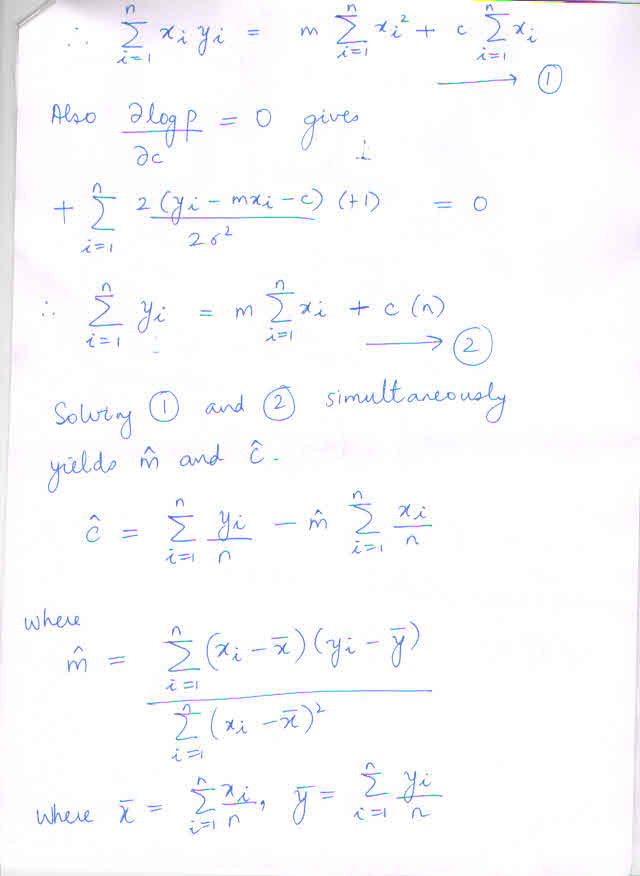 ∴ ∑_{i=1}^{n} x_i y_i = m ∑_{i=1}^{n} x_i² + c ∑_{i=1}^{n} x_i
⟶ ①
Also ∂log p / ∂c = 0 gives
+ ∑_{i=1}^{n} 2 (y_i − m x_i − c) (+1) / 2σ² = 0
∴ ∑_{i=1}^{n} y_i = m ∑_{i=1}^{n} x_i + c (n)
⟶ ②
Solving ① and ② simultaneously
yields m̂ and ĉ.
ĉ = ∑_{i=1}^{n} y_i / n − m̂ ∑_{i=1}^{n} x_i / n
where
m̂ = ∑_{i=1}^{n} (x_i − x̄) (y_i − ȳ) / ∑_{i=1}^{n} (x_i − x̄)²
where x̄ = ∑_{i=1}^{n} x_i / n, ȳ = ∑_{i=1}^{n} y_i / n